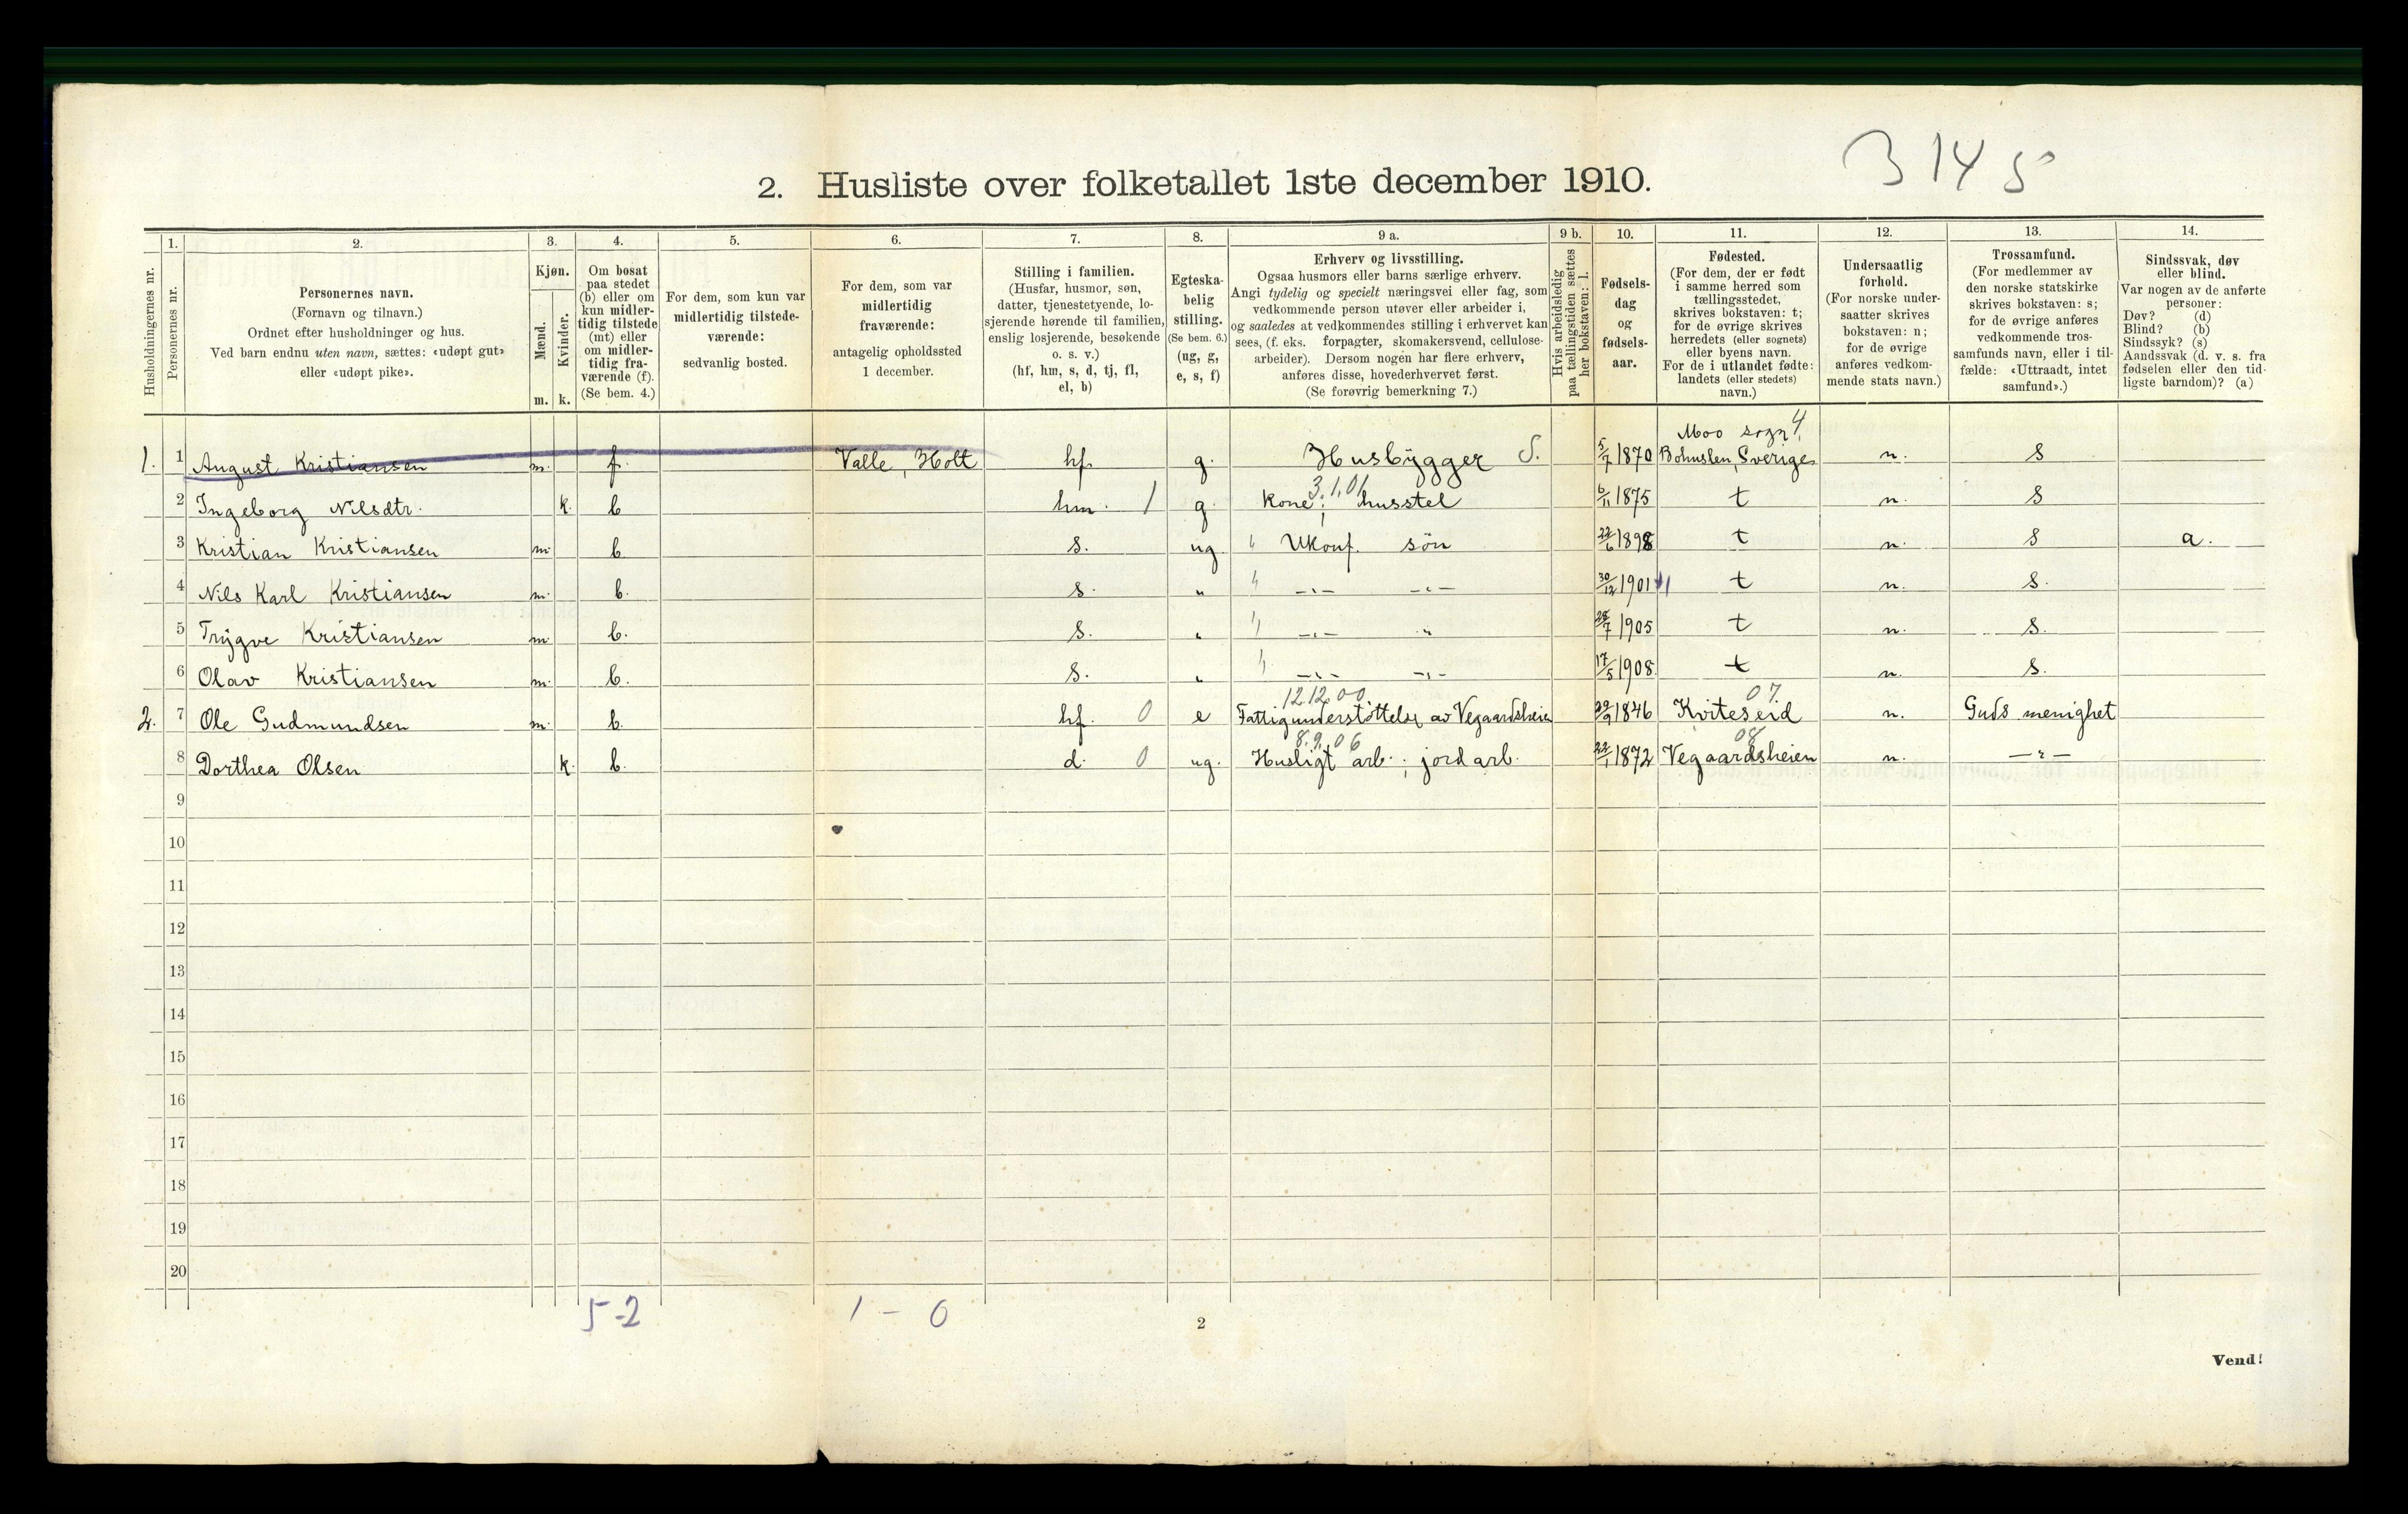 3 14 5
2. Husliste over folketallet 1ste december 1910.
Husholdningernes nr.
1.
Personernes nr.
2.
Personernes navn.
(Fornavn og tilnavn.)
Ordnet efter husholdninger og hus.
Ved barn endnu uten navn, sættes: «udøpt gut»
eller «udøpt pike».
3.
Kjøn.
Mænd.
Kvinder.
m. k.
4.
Om bosat
paa stedet
(b) eller om
kun midler-
tidig tilstede
(mt) eller
om midler-
tidig fra-
værende (f).
(Se bem. 4.)
5.
For dem, som kun var
midlertidig tilstede-
værende:
sedvanlig bosted.
6.
For dem, som var
midlertidig
fraværende:
antagelig opholdssted
1 december.
7.
Stilling i familien.
(Husfar, husmor, søn,
datter, tjenestetyende, lo-
sjerende hørende til familien,
enslig losjerende, besøkende
o. s. v.)
(hf, hm, s, d, tj, fl,
el, b)
8.
Egteska-
belig
stilling.
(Se bem. 6.)
(ug, g,
e, s, f)
9 a.
Erhverv og livsstilling.
Ogsaa husmors eller barns særlige erhverv.
Angi tydelig og specielt næringsvei eller fag, som
vedkommende person utøver eller arbeider i,
og saaledes at vedkommendes stilling i erhvervet kan
sees, (f. eks. forpagter, skomakersvend, cellulose-
arbeider). Dersom nogen har flere erhverv,
anføres disse, hovederhvervet først.
(Se forøvrig bemerkning 7.)
9 b.
Hvis arbeidsledig
paa tællingstiden sættes
her bokstaven: l.
10.
Fødsels-
dag
og
fødsels-
aar.
11.
Fødested.
(For dem, der er født
i samme herred som
tællingsstedet,
skrives bokstaven: t;
for de øvrige skrives
herredets (eller sognets)
eller byens navn.
For de i utlandet fødte:
landets (eller stedets)
navn.)
12.
Undersaatlig
forhold.
(For norske under-
saatter skrives
bokstaven: n;
for de øvrige
anføres vedkom-
mende stats navn.)
13.
Trossamfund.
(For medlemmer av
den norske statskirke
skrives bokstaven: s;
for de øvrige anføres
vedkommende tros-
samfunds navn, eller i til-
fælde: «Uttraadt, intet
samfund».)
14.
Sindssvak, døv
eller blind.
Var nogen av de anførte
personer:
Døv? (d)
Blind? (b)
Sindssyk? (s)
Aandssvak (d. v. s. fra
fødselen eller den tid-
ligste barndom)? (a)
Moo sogn 4,
1. 1 August Kristiansen m. f. Valle, Holt hf. g. Husbygger S. 5/7 1870 Bohuslen, Sverige n. s
3.1.01
2 Ingeborg Nilsdtr. k. b hm. 1 g. Kone; husstel 6/11 1875 t n. s
3 Kristian Kristiansen m. b. s. ug " Ukonf. søn 22/6 1898 t n. s a.
4 Nils Karl Kristiansen m. b. s. " " -"- -"- 30/12 1901 t n. s.
5 Trygve Kristiansen m. b. s. " " -"- " 28/7 1905 t n. s.
6 Olav Kristiansen m. b. s. " " -"- -"- 17/5 1908. t n. s.
12.12.00 07
2. 7 Ole Gudmundsen m. b. hf. 0 e Fattigunderstöttelse av Vegaardsheien 29/9 1846 Kviteseid n. Guds menighet
8.9.06 08
8 Dorthea Olsen k. b. d. 0 ug. Husligt arb.; jordarb. 22/1 1872 Vegaardsheien n. -"-
9
10
11
12
13
14
15
16
17
18
19
20
5-2 1 - 0
2
Vend!